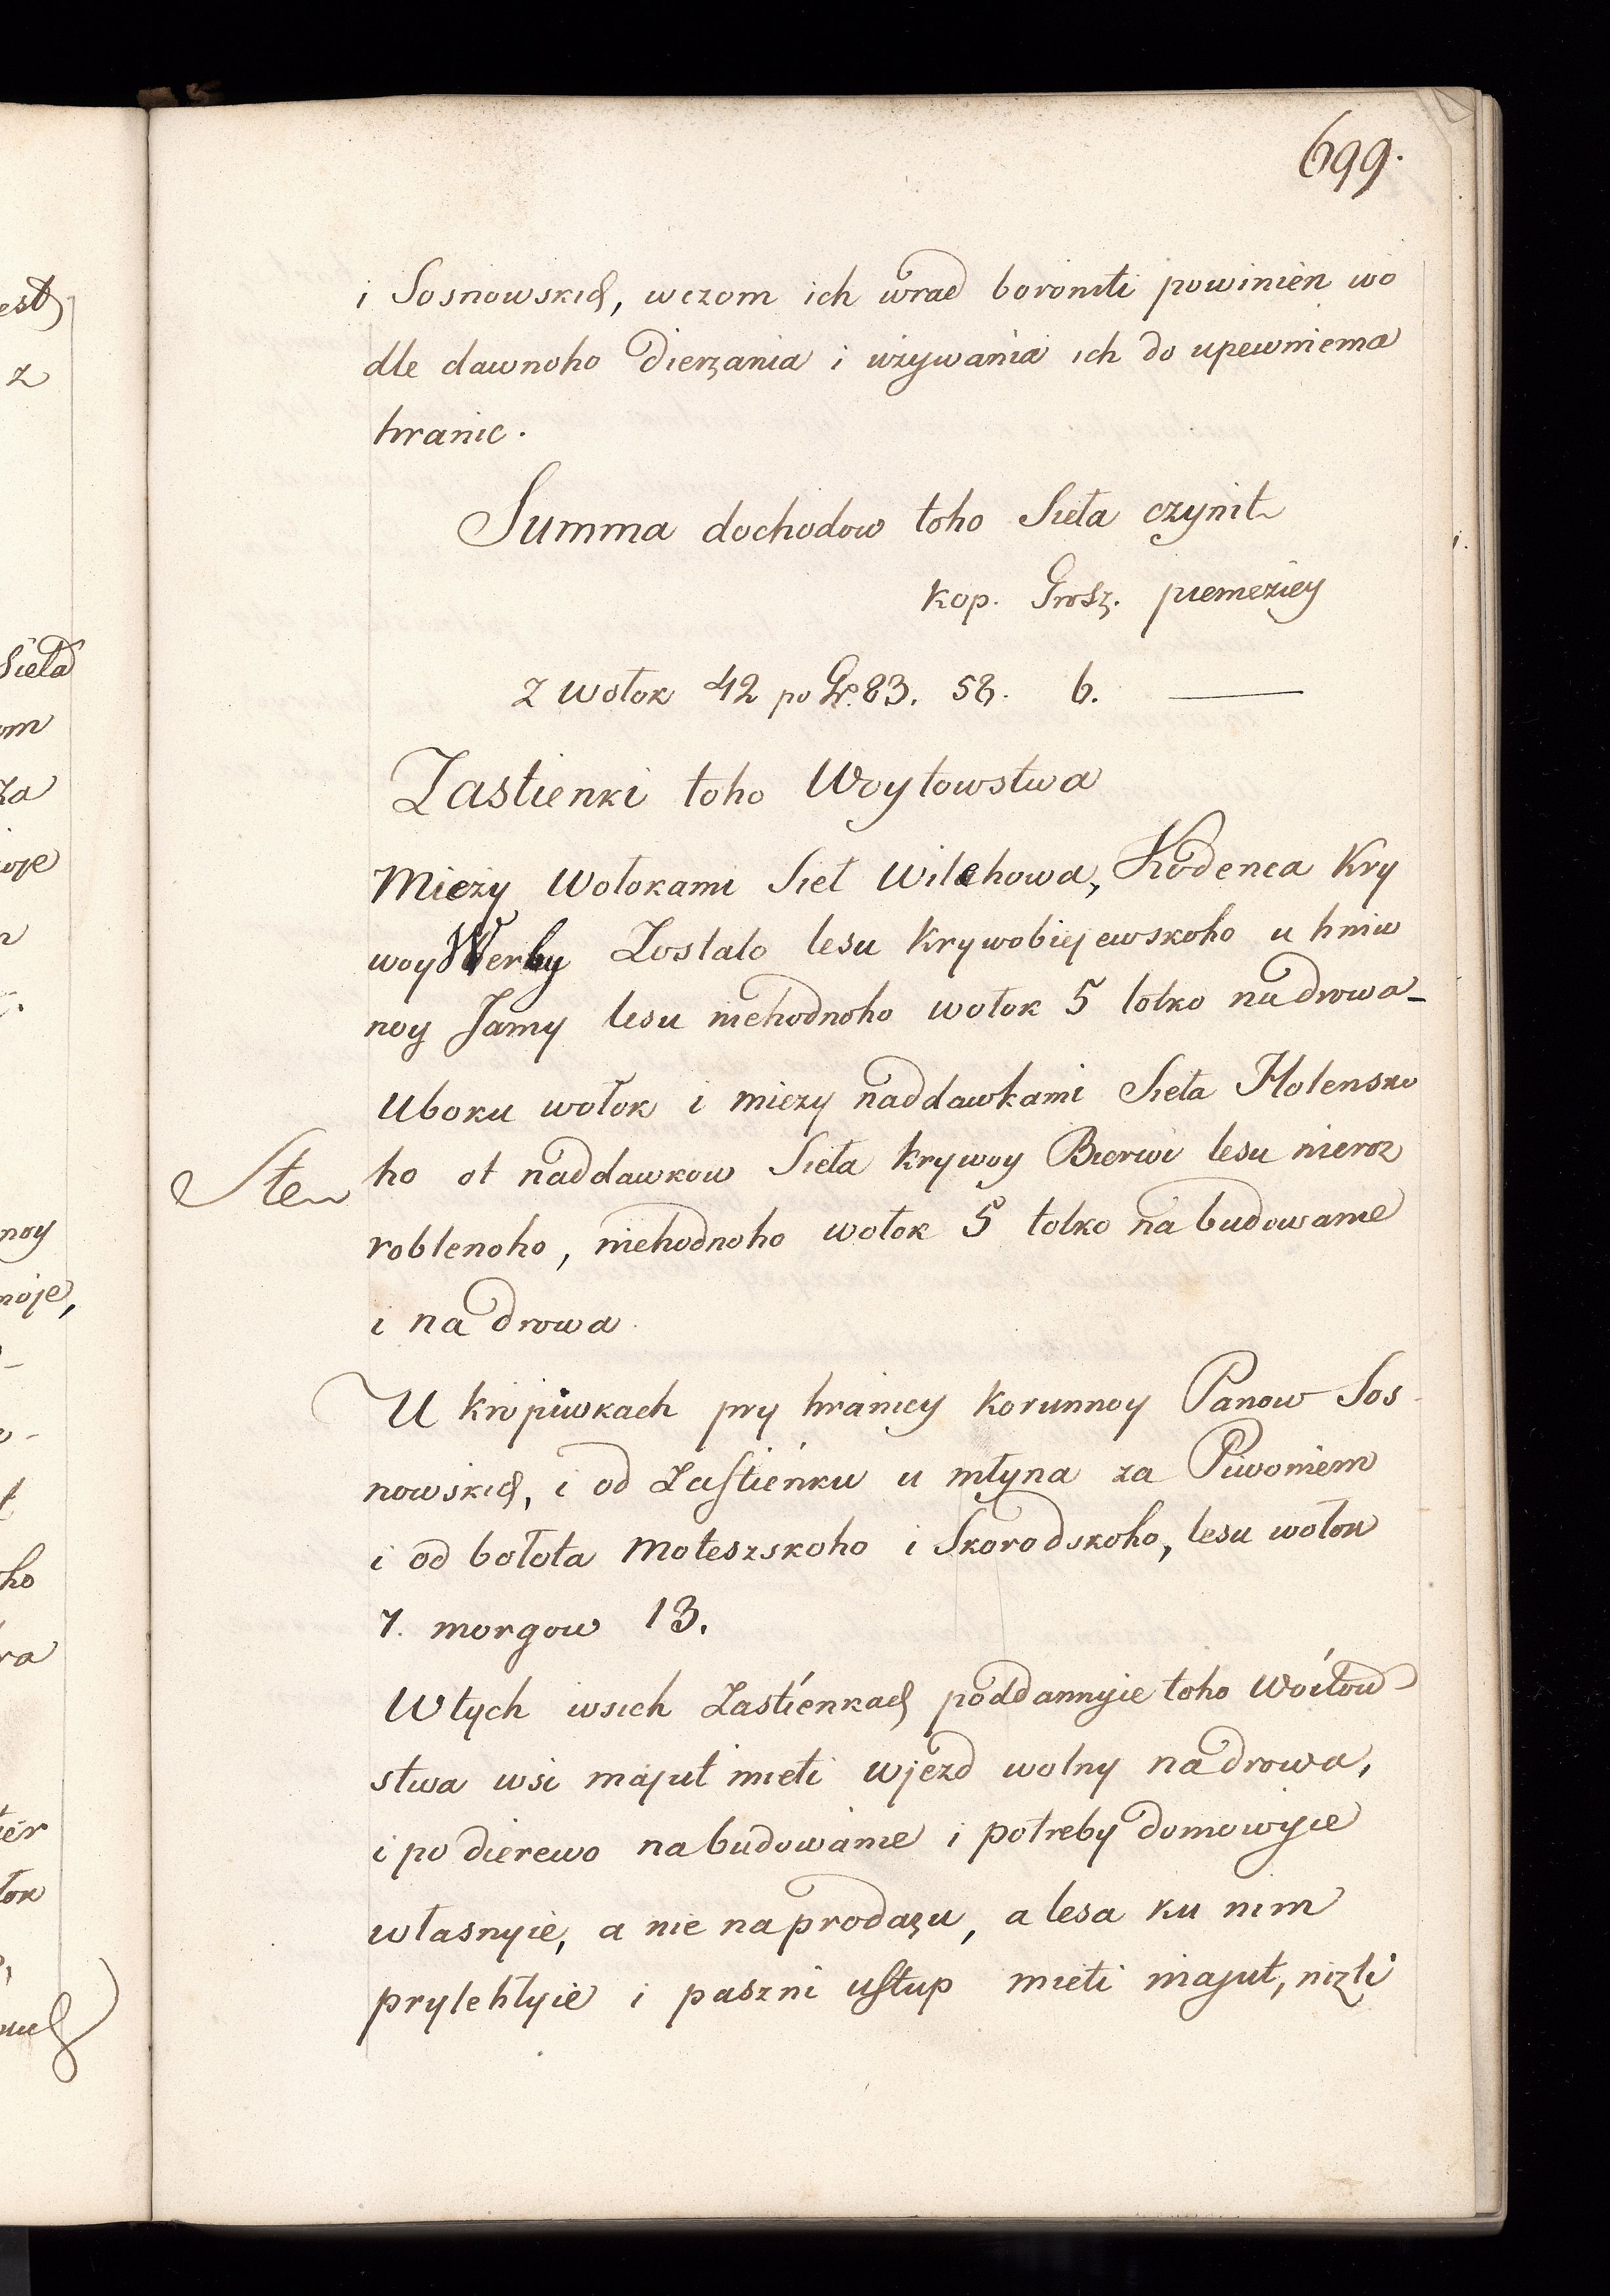 699.
i Sosnowskich, w czom ich wrad boroniti powinien wo
dle dawnoho dierżania i używania ich do upewnienia
hranic.
Summa dochodow toho Sieła czynit
kop. Grosz. pieneziey
z wołok 42 po Gr. 83. 58. 6. ———
Zastienki toho Woytowstwa
Mieży Wołokami Sieł Wilchowa, Kodenca Kry
woy Werby Zostało lesu Krywobiejewskoho u hniw
noy Jamy lesu niehodnoho wołok 5 tolko na drowa_
U boku wołok i mieży naddawkami Sieła Holensko
ho ot naddawkow Sieła Krywoy Bierwi lesu nieroz
Sten
roblenoho, niehodnoho wołok 5 tolko na budowanie
i na drowa.
U kropiwkach pry hranicy Korunnoy Panow Sos
nowskich, i od Zastienku u młyna za Piwoniem
i od bołota Moteszskoho i Skorodskoho, lesu wołok
7. morgow 13.
W tych wsich Zastienkach poddannyie toho Wóitow
stwa wsi majut mieti wjezd wolny na drowa,
i po dierewo na budowanie i potreby domowyie
własnyie, a nie na prodażu, a lesa ku nim
prylehłyie i paszni ustup mieti majut, niżli
est
z
Sieła
om
za
oje
noy
noje,
ho
ra
ier
łok